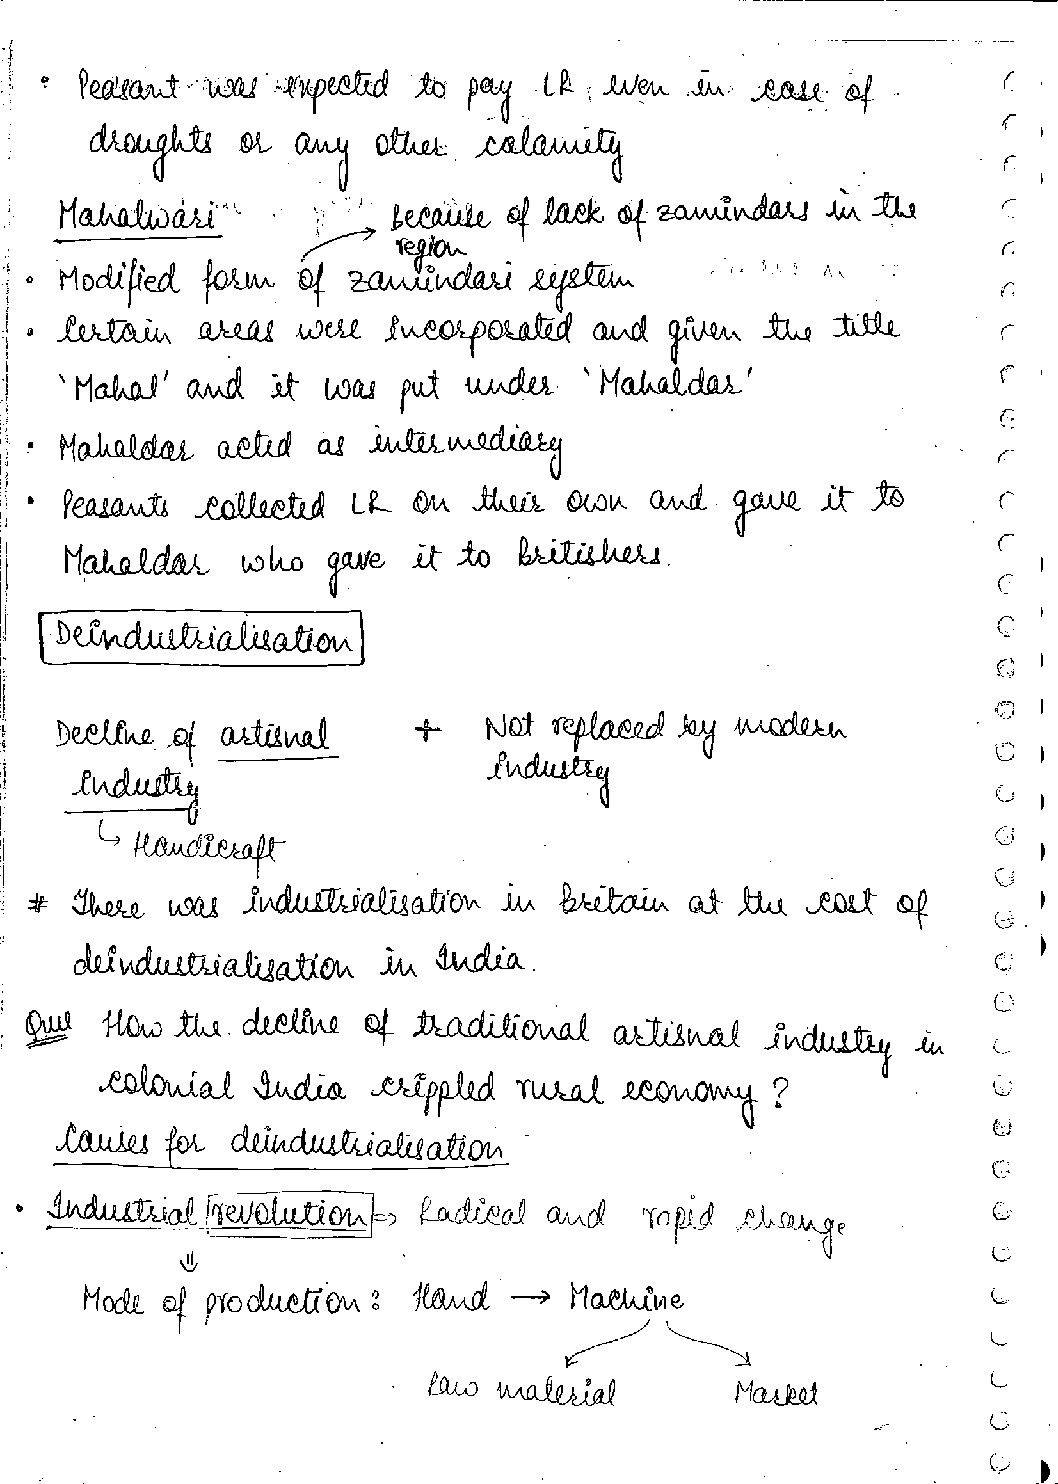 • Peasant was expected to pay LR, even in case of
droughts or any other calamity
Mahalwari
because of lack of zamindars in the
region
• Modified form of zamindari system
• Certain areas were incorporated and given the title
'Mahal' and it was put under 'Mahaldar'
• Mahaldar acted as intermediary
• Peasants collected LR on their own and gave it to
Mahaldar who gave it to Britishers.
Deindustrialisation
Decline of artisnal + Not replaced by modern
industry industry
↳ Handicraft
# There was industrialisation in Britain at the cost of
deindustrialisation in India.
Que How the decline of traditional artisnal industry in
colonial India crippled rural economy?
Causes for deindustrialisation
• Industrial revolution => Radical and rapid change
⇓
Mode of production: Hand → Machine
Raw material Market